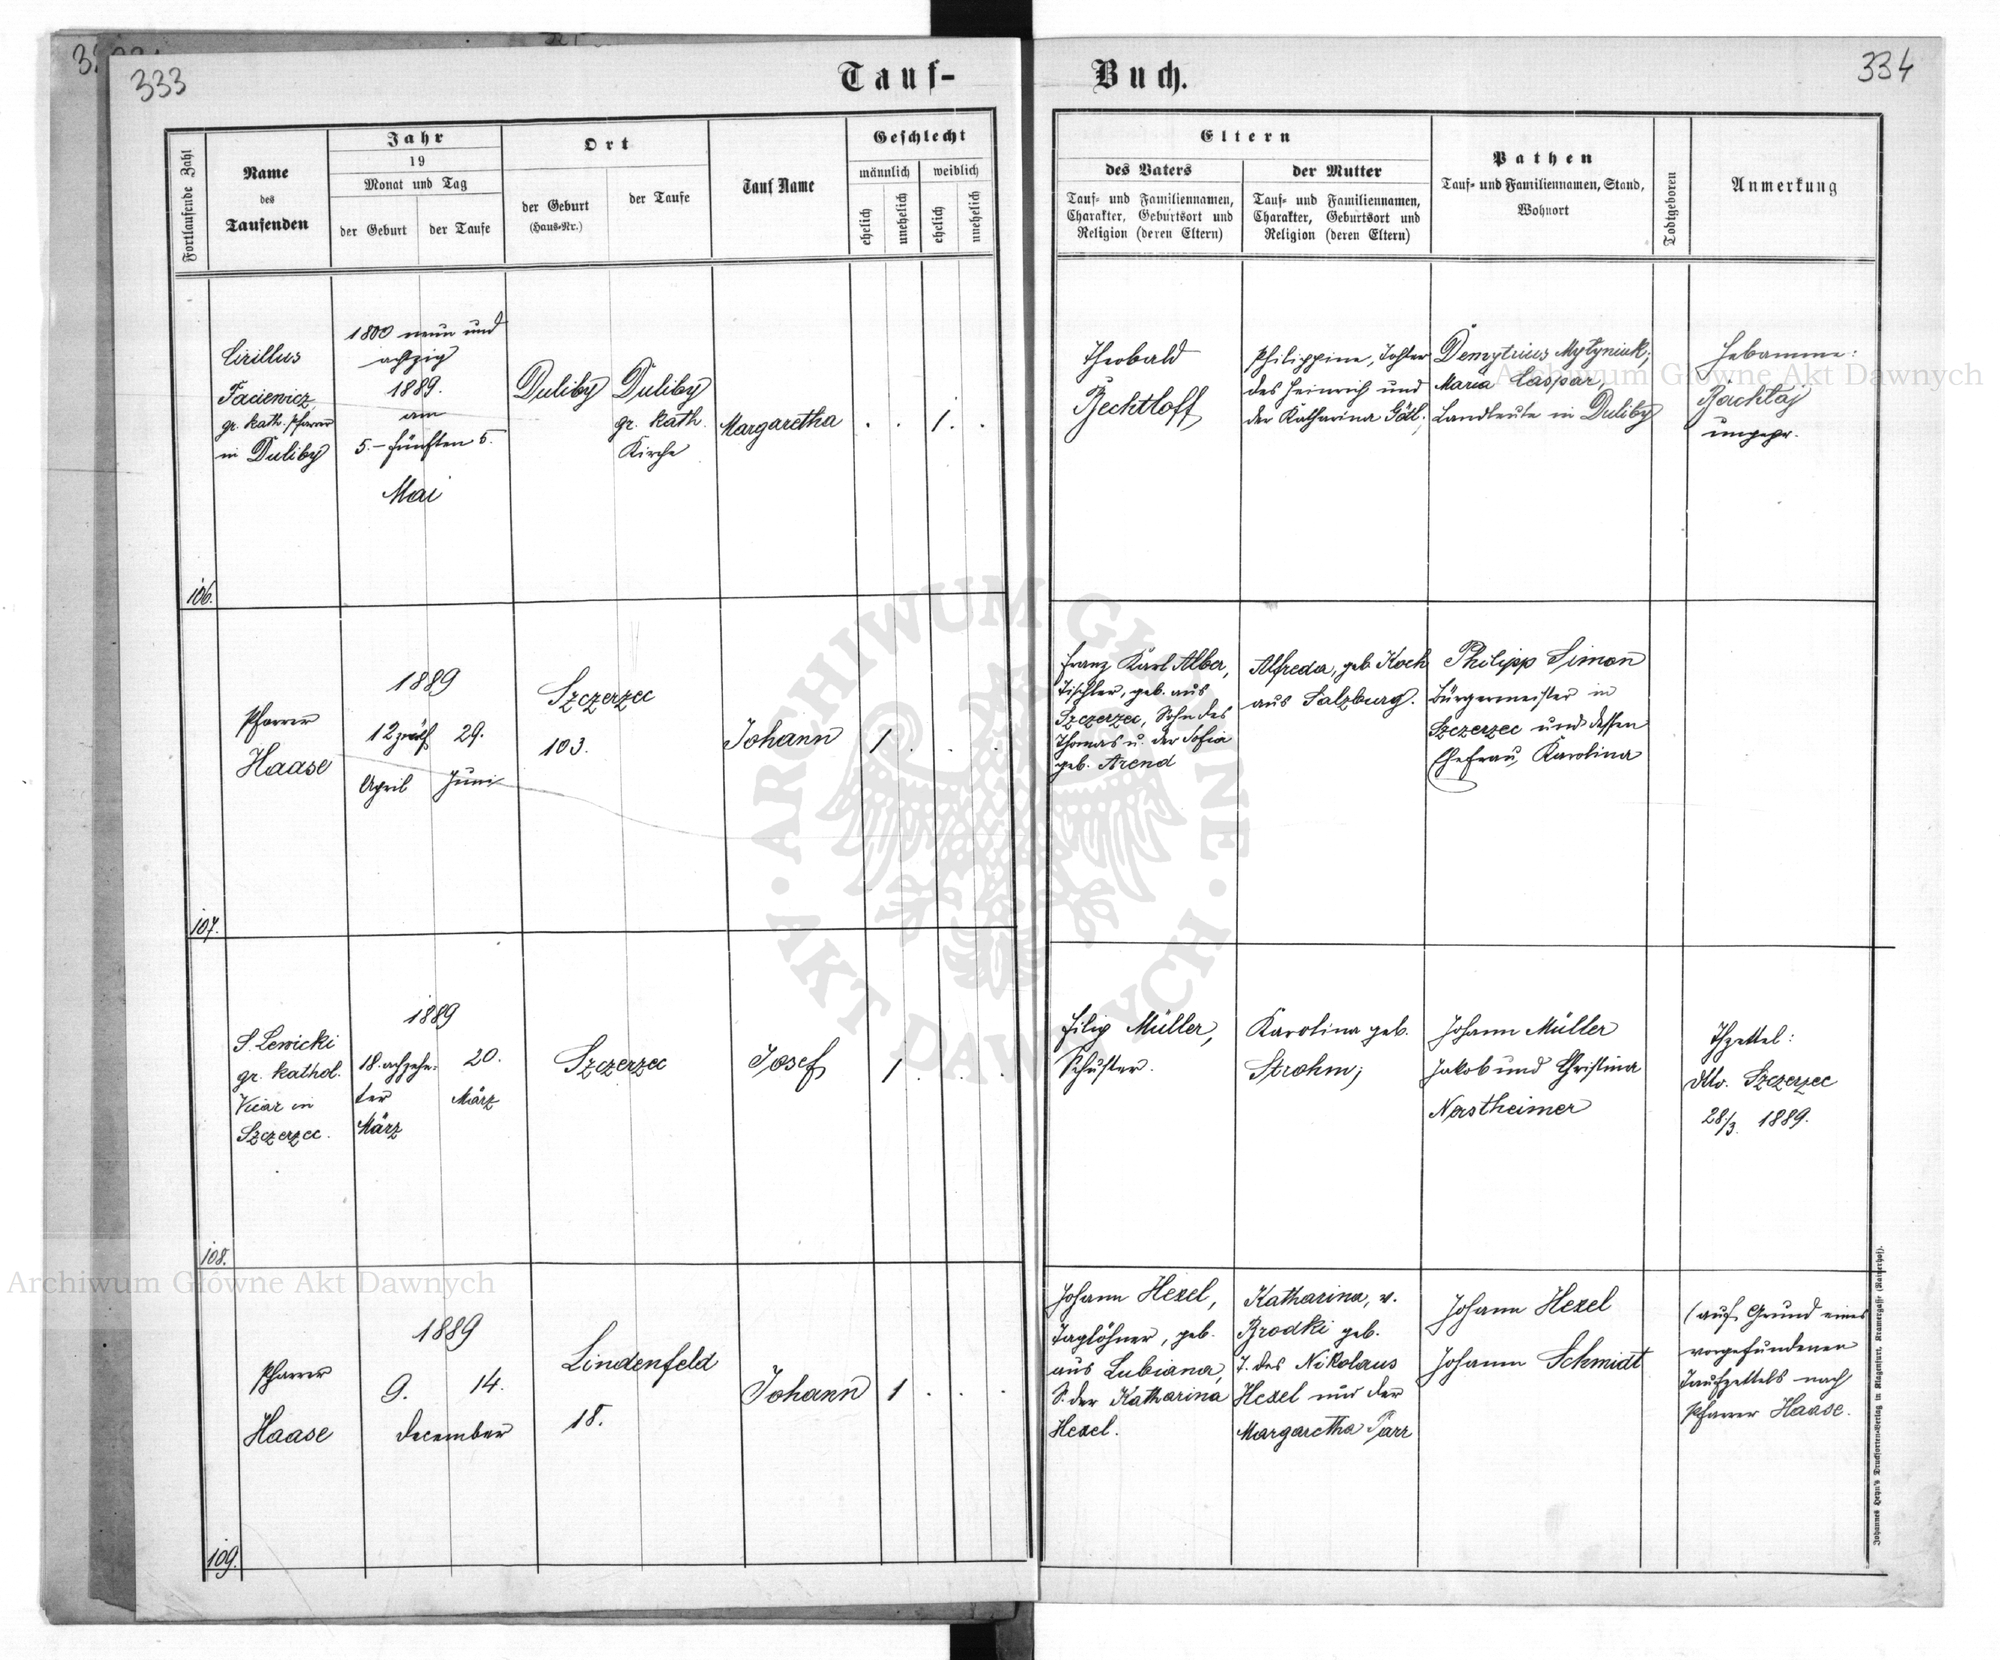 333
Tauf-
Buch.
334
Fortlaufende Zahl
Name
des
Taufenden
Jahr
19
Monat und Tag
der Geburt
der Taufe
Ort
der Geburt
(Haus-Nr.)
der Taufe
Tauf Name
Geschlecht
männlich
weiblich
ehelich
unehelich
ehelich
unehelich
Eltern
des Vaters
Tauf- und Familiennamen,
Charakter, Geburtsort und
Religion (deren Eltern)
der Mutter
Tauf- und Familiennamen,
Charakter, Geburtsort und
Religion (deren Eltern)
Pathen
Tauf- und Familiennamen, Stand,
Wohnort
Todtgeboren
Anmerkung
106.
Cirillus
gr. kath. Pfarrer
in Duliby
1800 neun und
achtzig
1889.
am
5.- fünften 5.
Mai
Duliby
Duliby
gr. kath.
Kirche
Margaretha
1.
Theobald
Bechtloff
Philippine, Tochter
des Heinrich und
der Katharina
Demytrius Mytyniuk;
Maria Caspar,
Landleute in Duliby
Hebamme:
Bachtaj
ungepr.
107.
Pfarrer
Haase
1889
12 zwölf
April
29.
Juni
Szczerzec
103.
Johann
1
Franz Karl Alber,
Tischler, geb. aus
Szczerzec, Sohn des
Thomas u. der Sofia
geb. Arend
Alfreda, geb. Koch
aus Salzburg.
Philipp Simon
Bürgermeister in
Szczerzec und dessen
Ehefrau, Karolina
108.
S. Lewicki
gr. kathol.
Vicar in
Szczerzec.
1889
18. achzehn-
ter
März
20.
März
Szczerzec
Josef
1
Filip Müller,
Schuster.
Karolina geb.
Strohm;
Johann Müller
Jakob und Christina
Nerstheimer
Thzettel:
dto. Szczerzec
28/3. 1889.
109.
Pfarrer
Haase
1889
9.
14.
December
Lindenfeld
18.
Johann
1
Johann Hexel,
Taglöhner, geb.
aus Lubiana,
S. der Katharina
Hexel.
Katharina, v.
Brodki geb.
T. des Nikolaus
Hexel und der
Margaretha Parr
Johann Hexel
Johann Schmidt
(auf Grund eines
vorgefundenen
Taufzettels nach
Pfarrer Haase.
Johannes Heyn's Drucksorten-Verlag in Klagenfurt, Kramergasse (Kaiserhof).
Archiwum Główne Akt Dawnych
Archiwum Główne Akt Dawnych
ARCHIWUM GŁÓWNE
AKT DAWNYCH